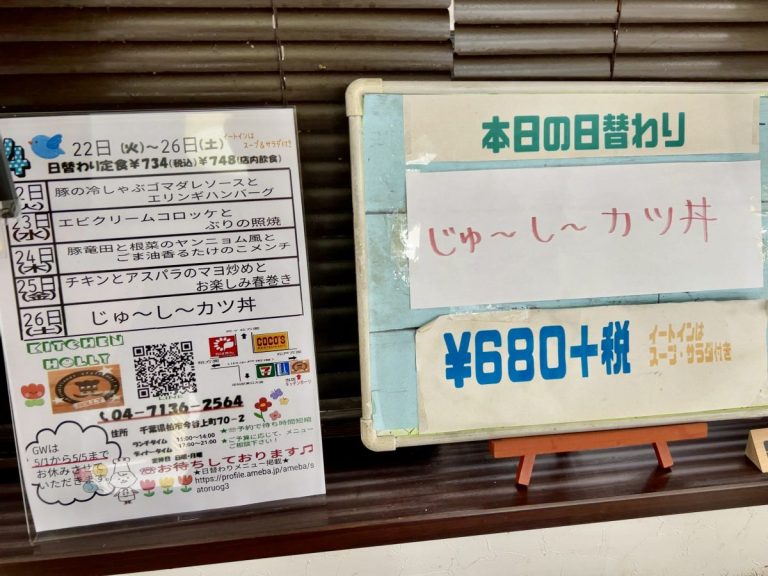 22日(火)～26日(土)
イートインは
スープ&サラダ付き
日替わり定食¥734(税込)¥748(店内飲食)
豚の冷しゃぶゴマダレソースと
エリンギハンバーグ
23日
(水)
エビクリームコロッケと
ぶりの照焼
24日
(木)
豚竜田と根菜のヤンニョム風と
ごま油香るたけのこメンチ
25日
(金)
チキンとアスパラのマヨ炒めと
お楽しみ春巻き
26日
(土)
じゅ～し～カツ丼
KITCHEN
HOLLY
LINE
COCO'S
04-7136-2564
住所 千葉県柏市今谷上町70-2
ランチタイム 11:00～14:00
ディナータイム 17:00～21:00
定休日 日曜・月曜
★ご予約で待ち時間短縮
★ご予算に応じて、メニュー
ご相談下さい!
お待ちしております♫
★日替わりメニュー掲載★
https://profile.ameba.jp/ameba/s
atoruog3
GWは
5/1から5/5まで
お休みさせて
いただきます
本日の日替わり
じゅ～し～カツ丼
¥680+税
イートインは
スープ・サラダ付き